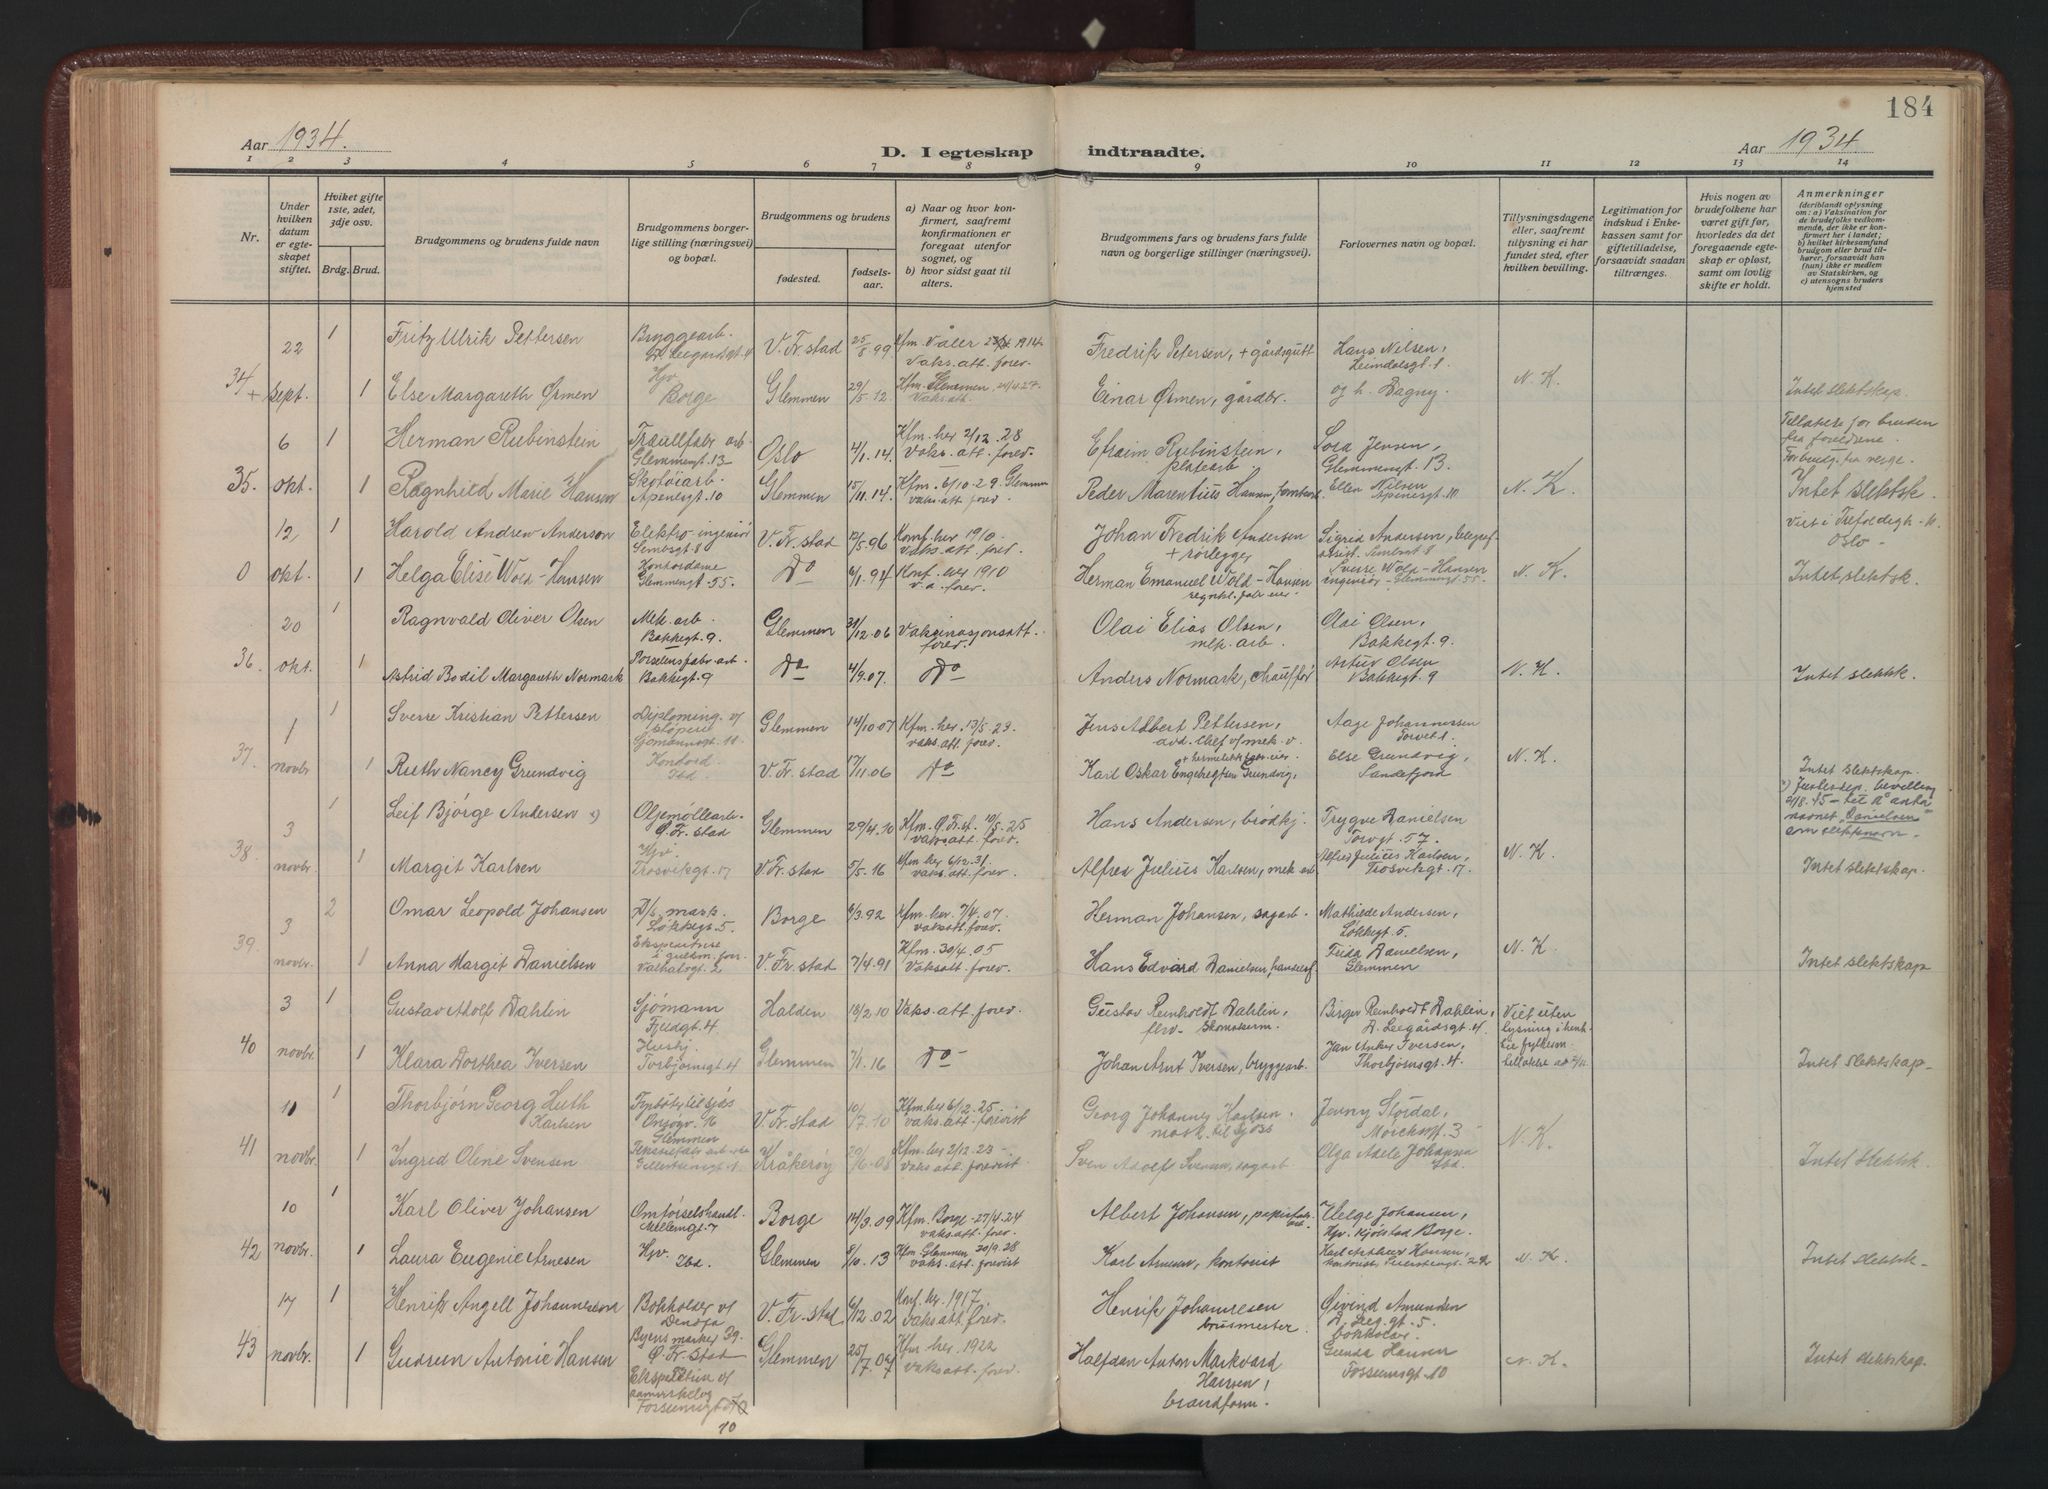 184
Aar 1934.
D. I egteskap indtraadte.
Aar 1934
1 2 3 4 5 6 7 8 9 10 11 12 13 14
Nr.
Under hvilken datum er egteskapet stiftet.
Hvilket gifte 1ste, 2det, 3dje osv.
Brdg. Brud.
Brudgommens og brudens fulde navn
Brudgommens borgerlige stilling (næringsvei) og bopæl.
Brudgommens og brudens
fødested.
fødselsaar.
a) Naar og hvor konfirmert, saafremt konfirmationen er foregaat utenfor sognet, og
b) hvor sidst gaat til alters.
Brudgommens fars og brudens fars fulde navn og borgerlige stillinger (næringsvei).
Forlovernes navn og bopæl.
Tillysningsdagene eller, saafremt tillysning ei har fundet sted, efter hvilken bevilling.
Legitimation for indskud i Enkekassen samt for giftetilladelse, forsaavidt saadan tiltrænges.
Hvis nogen av brudefolkene har været gift før, hvorledes da det foregaaende egteskap er opløst, samt om lovlig skifte er holdt.
Anmerkninger
(deriblandt oplysning om: a) Vaksination for de brudefolks vedkommende, der ikke er konfirmert her i landet; b) hvilket kirkesamfund brudgom eller brud tilhører, forsaavidt han (hun) ikke er medlem av Statskirken, og c) utensogns bruders hjemsted
22 1 Fritz Ulrik Pettersen Bryggearb. V. Fr.stad 25/8 99 Kfm. Våler 1914 vaks. att. forev. Fredrik Petersen, + gårdsgutt Hans Nilsen, Leirdalsgt. 1
34 + sept. 1 Else Margareth Ørmen Hjv Borge Glemmen 29/5. 12 Kfm. Glemmen Vaks. att. Einar Ørmen, gårdbr. og h. Dagny. N. K. Intet slektskap.
6 1 Herman Rubinstein Træullfabr arb Glemmengt. 13 Oslo 4/1. 14. Kfm. her 2/12. 28 Vaks. att. forev. Efraim Rubinstein, platearb Lora Jensen, Glemmengt. 13. Tillatelse for bruden fra foreldrene.
35. okt. 1 Ragnhild Marie Hansen Skotøiarb. Apenesgt. 10 Glemmen 15/11. 14. Kfm. 6/10. 29. Glemmen vaks. att. forev. Peder Marentius Hansen, Ellen Nilsen Apenesgt. 10 N. K. Intet slektsk.
12 1 Harold Andrew Anderson Elektro-ingeniør Sembsgt 8 V. Fr. stad 12/5 96 Konf. her 1910. vaks. att. forev. Johan Fredrik Andersen + rørlegger Sigrid Andersen, telegraf assist. Sembsgt 8 Viet i Trefoldigh. k. Oslo
0 okt. 1 Helga Elise Wold-Hansen Kontordame Glemmengt. 55. Do 6/1. 94 Konf. her 1910 v. a. forev. Herman Emanuel Wold-Hansen Sverre Wold-Hansen ingeniør Glemmengt. 55. N. K. Intet slektsk.
20 1 Ragnvald Oliver Olsen Mek. arb. Bakkegt. 9. Glemmen 31/12. 06 Vaksinasjonsatt. forev. Olai Elias Olsen, mek. arb. Olai Olsen, Bakkegt. 9.
36. okt. 1 Astrid Bodil Margareth Normark Porselensfabr. arb. Bakkegt. 9 Do 4/9 07. Do Anders Normark, chauffør Artur Olsen Bakkegt. 9 N. K. Intet slektsk.
1 1 Sverre Kristian Pettersen Diploming. v/ støperi Sjømannsgt. 11 Glemmen 14/10 07 Kfm. her. 13/5. 23. vaks. att. forev. Jens Albert Pettersen, avd. chef v/ mek. v. Aage Johannessen Torvet 1
37. novbr 1 Ruth Nancy Grundvig Kontord. Ibd. V. Fr. stad 17/11. 06 Do Karl Oskar Engebregtsen Grundvig, Else Grundvig, Sandefjord N. K. Intet slektskap.
3 1 Leif Bjørge Andersen x) Oljemøllearb. Ø. Fr. stad Glemmen 29/4. 10 Kfm. Ø. Fr.st. 10/5. 25 vaks. att. forev. Hans Andersen, brødkj. Trygve Danielsen Torvgt. 57. x) Justisdep. bevilling 21/8. 45 til å anta navnet "Danielsen" som slektsnavn.
38. novbr. 1 Margit Karlsen Hjv. Trosvikgt. 17 V. Fr. stad 5/5. 16 Kfm her 6/12. 31. vaks. att. forev. Alfred Julius Karlsen, mek arb. Alfred Julius Karlsen, Trosvikgt. 17. N. K. Intet slektskap.
3 2 Omar Leopold Johansen D/s. mask. Løkkegt. 5. Borge 9/3. 92 Kfm. her. 7/4. 07. vaks att. forev. Herman Johansen, sagarb. Mathilde Andersen, Løkkegt. 5.
39. novbr. 1 Anna Margit Danielsen Ekspeditrise i gullsm. forr. Valhalsgt. 2 V. Fr. stad 7/4. 91 Kfm. 30/4. 05 Vaks att. forev. Hans Edvard Danielsen, Frida Danielsen, Glemmen N. K. Intet slektskap
3 1 Gustav Adolf Dahlin Sjømann Fjeldgt. 4 Halden 18/2. 10 Vaks. att. forev. Gustav Reinholdt Dahlin, Birger Reinholdt Dahlin, Viet uten lysning i henh.
40 novbr. 1 Klara Dorthea Iversen Hushj. Torbjørnsgt. 4 Glemmen 7/1. 16 Do Johan Arnt Iversen, bryggearb. Jan Anker Iversen, Thorbjørnsgt. 4. Intet slektskap.
10 1 Thorbjørn Georg Huth Karlsen Fyrbøter til sjøs V. Fr. stad 10/7. 10 Kfm. her 6/12. 25. vaks. att. forevist Georg Johannes Karlsen. mask. til sjøss Jenny Stordal,
41 novbr. 1 Ingrid Oline Svensen Glemmen Kråkerøy Kfm. her 2/12. 23 vaks. att. forevist Sven Adolf Svensen, sagarb. Olga Adele Johanna Ibd. N. K. Intet slektsk.
10 1 Karl Oliver Johansen Omførselshandl. Møllerngt. 7 Borge 14/3. 09 Kfm. Borge 27/4. 24 vaks. att. forev. Albert Johansen, papirfabr. arb. Helge Johansen, Hjv. Kjølstad Borge.
42 novbr. 1 Laura Eugenie Arnesen Hjv. Ibd. Glemmen 8/10. 13 Kfm. Glemmen 30/9. 28 vaks. att. forevist Karl Arnesen, kontorist Karl Arthur Hansen, kontorist, N. K. Intet slektsk.
17 1 Henrik Angell Johannessen Bokholder v/ Denofa V. Fr. stad 6/12. 02 Konf. her 1917. vaks. att. forev. Henrik Johannesen brusmester Øivind Amundsen bokholder
43 novbr. 1 Gudrun Antonie Hansen Byens marker 39. Ø. Fr. stad Glemmen 25/7. 07 Kfm her. 1922 Vaks. att. forev. Halfdan Anton Markvard Hansen, brandform. Gunda Hansen Fossumsgt. 10 N. K. Intet slektskap.
Ekspeditrise v/ samvirkelag Fossumsgt
10